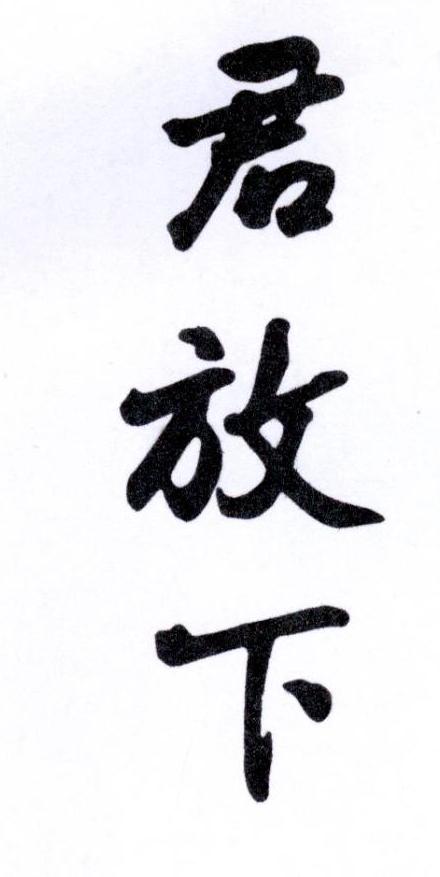 君放下